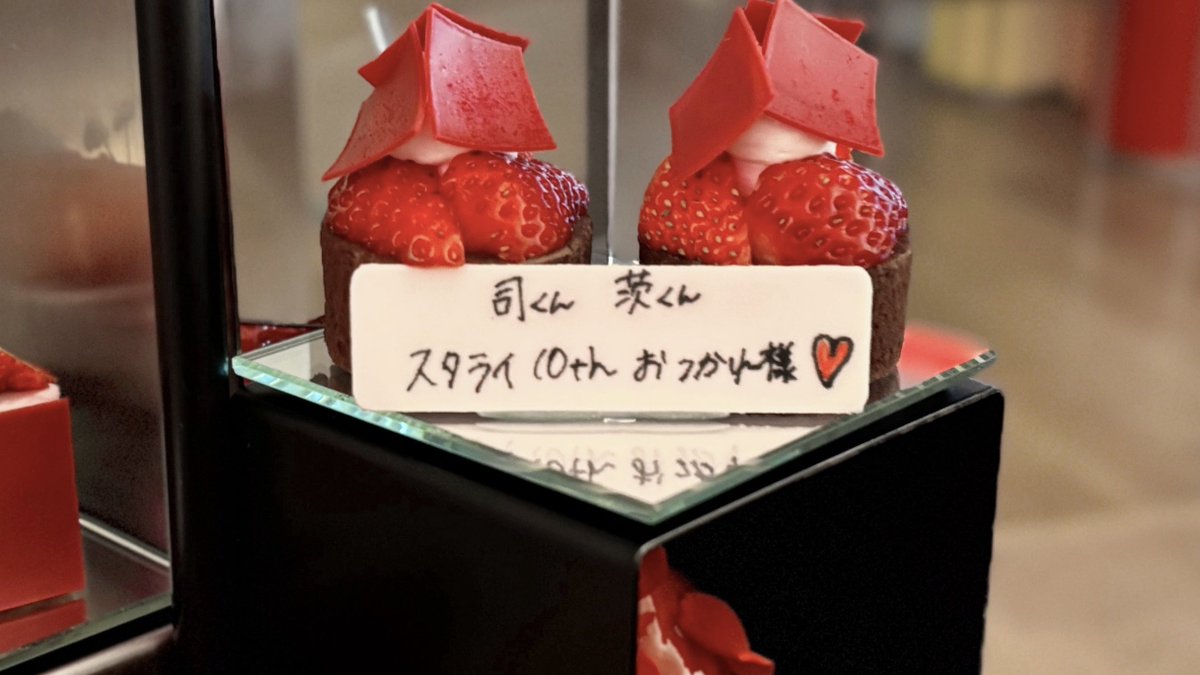 司くん 茨くん
スタライ 10th おつかれ様